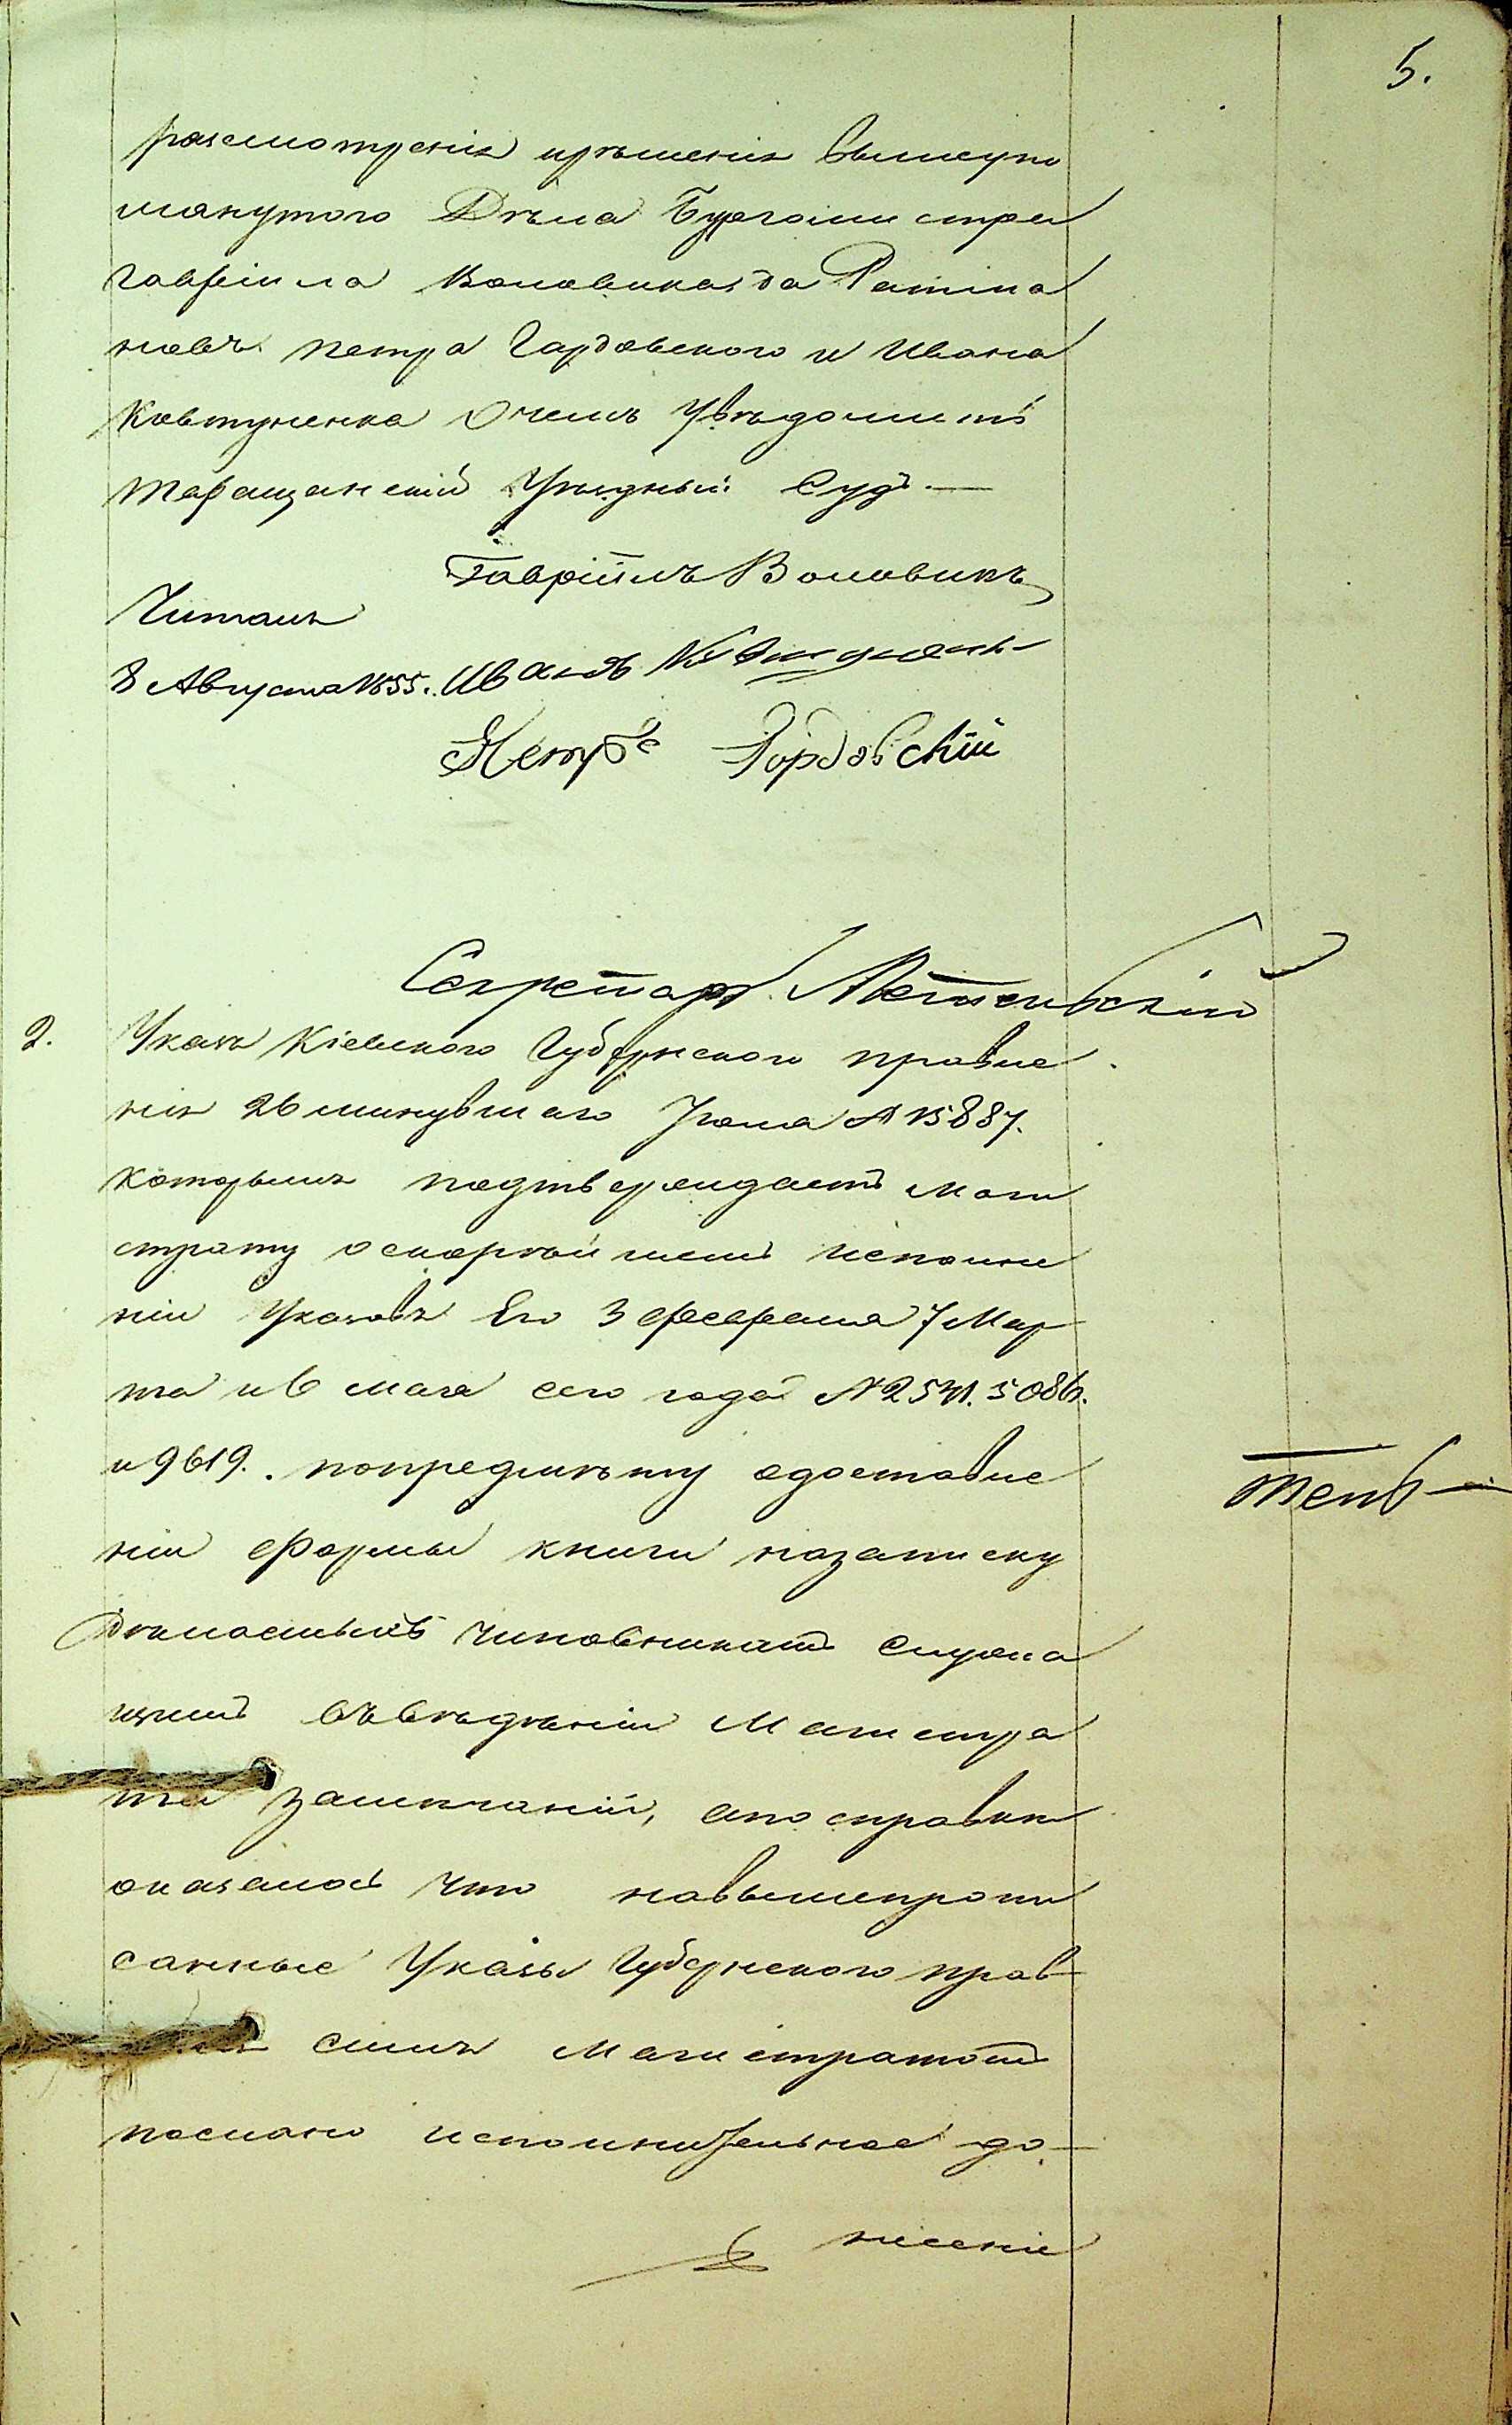 5.
разсмотренія ирѣшенія вышеупо
мянутого Дѣла Бургомистра
Гавріила Воловика да Ратма
новъ Петра Гардовского и Ивана
Ковтуненка Очемъ Увѣдомить
Таращанскій Уѣздный Судъ. —
Гавріилъ Воловикъ
Читалъ
8 Августа 1855. Иванъ
Петръ Гордовскій
Секретарь
2. Указъ Кіевского Губернского правле
нія 26 минувшаго Іюля № 15887.
которымъ подтверждаетъ маги
страту оскорѣйшемъ исполне
ніи Указовъ Его 3 февраля 7 Мар
та и 6 мая сего года № 2541. 5086.
и 9619. попредмѣту одоставле
ніи формы книги назаписку
дѣлаемыхъ чиновникамъ служа
щимъ въвѣдѣніи Магистра
та замѣчаній, апо справки
оказалось что навышепропи
санные Указы Губернского прав
симъ магистратомъ
послано исполнительное до-
несеніе